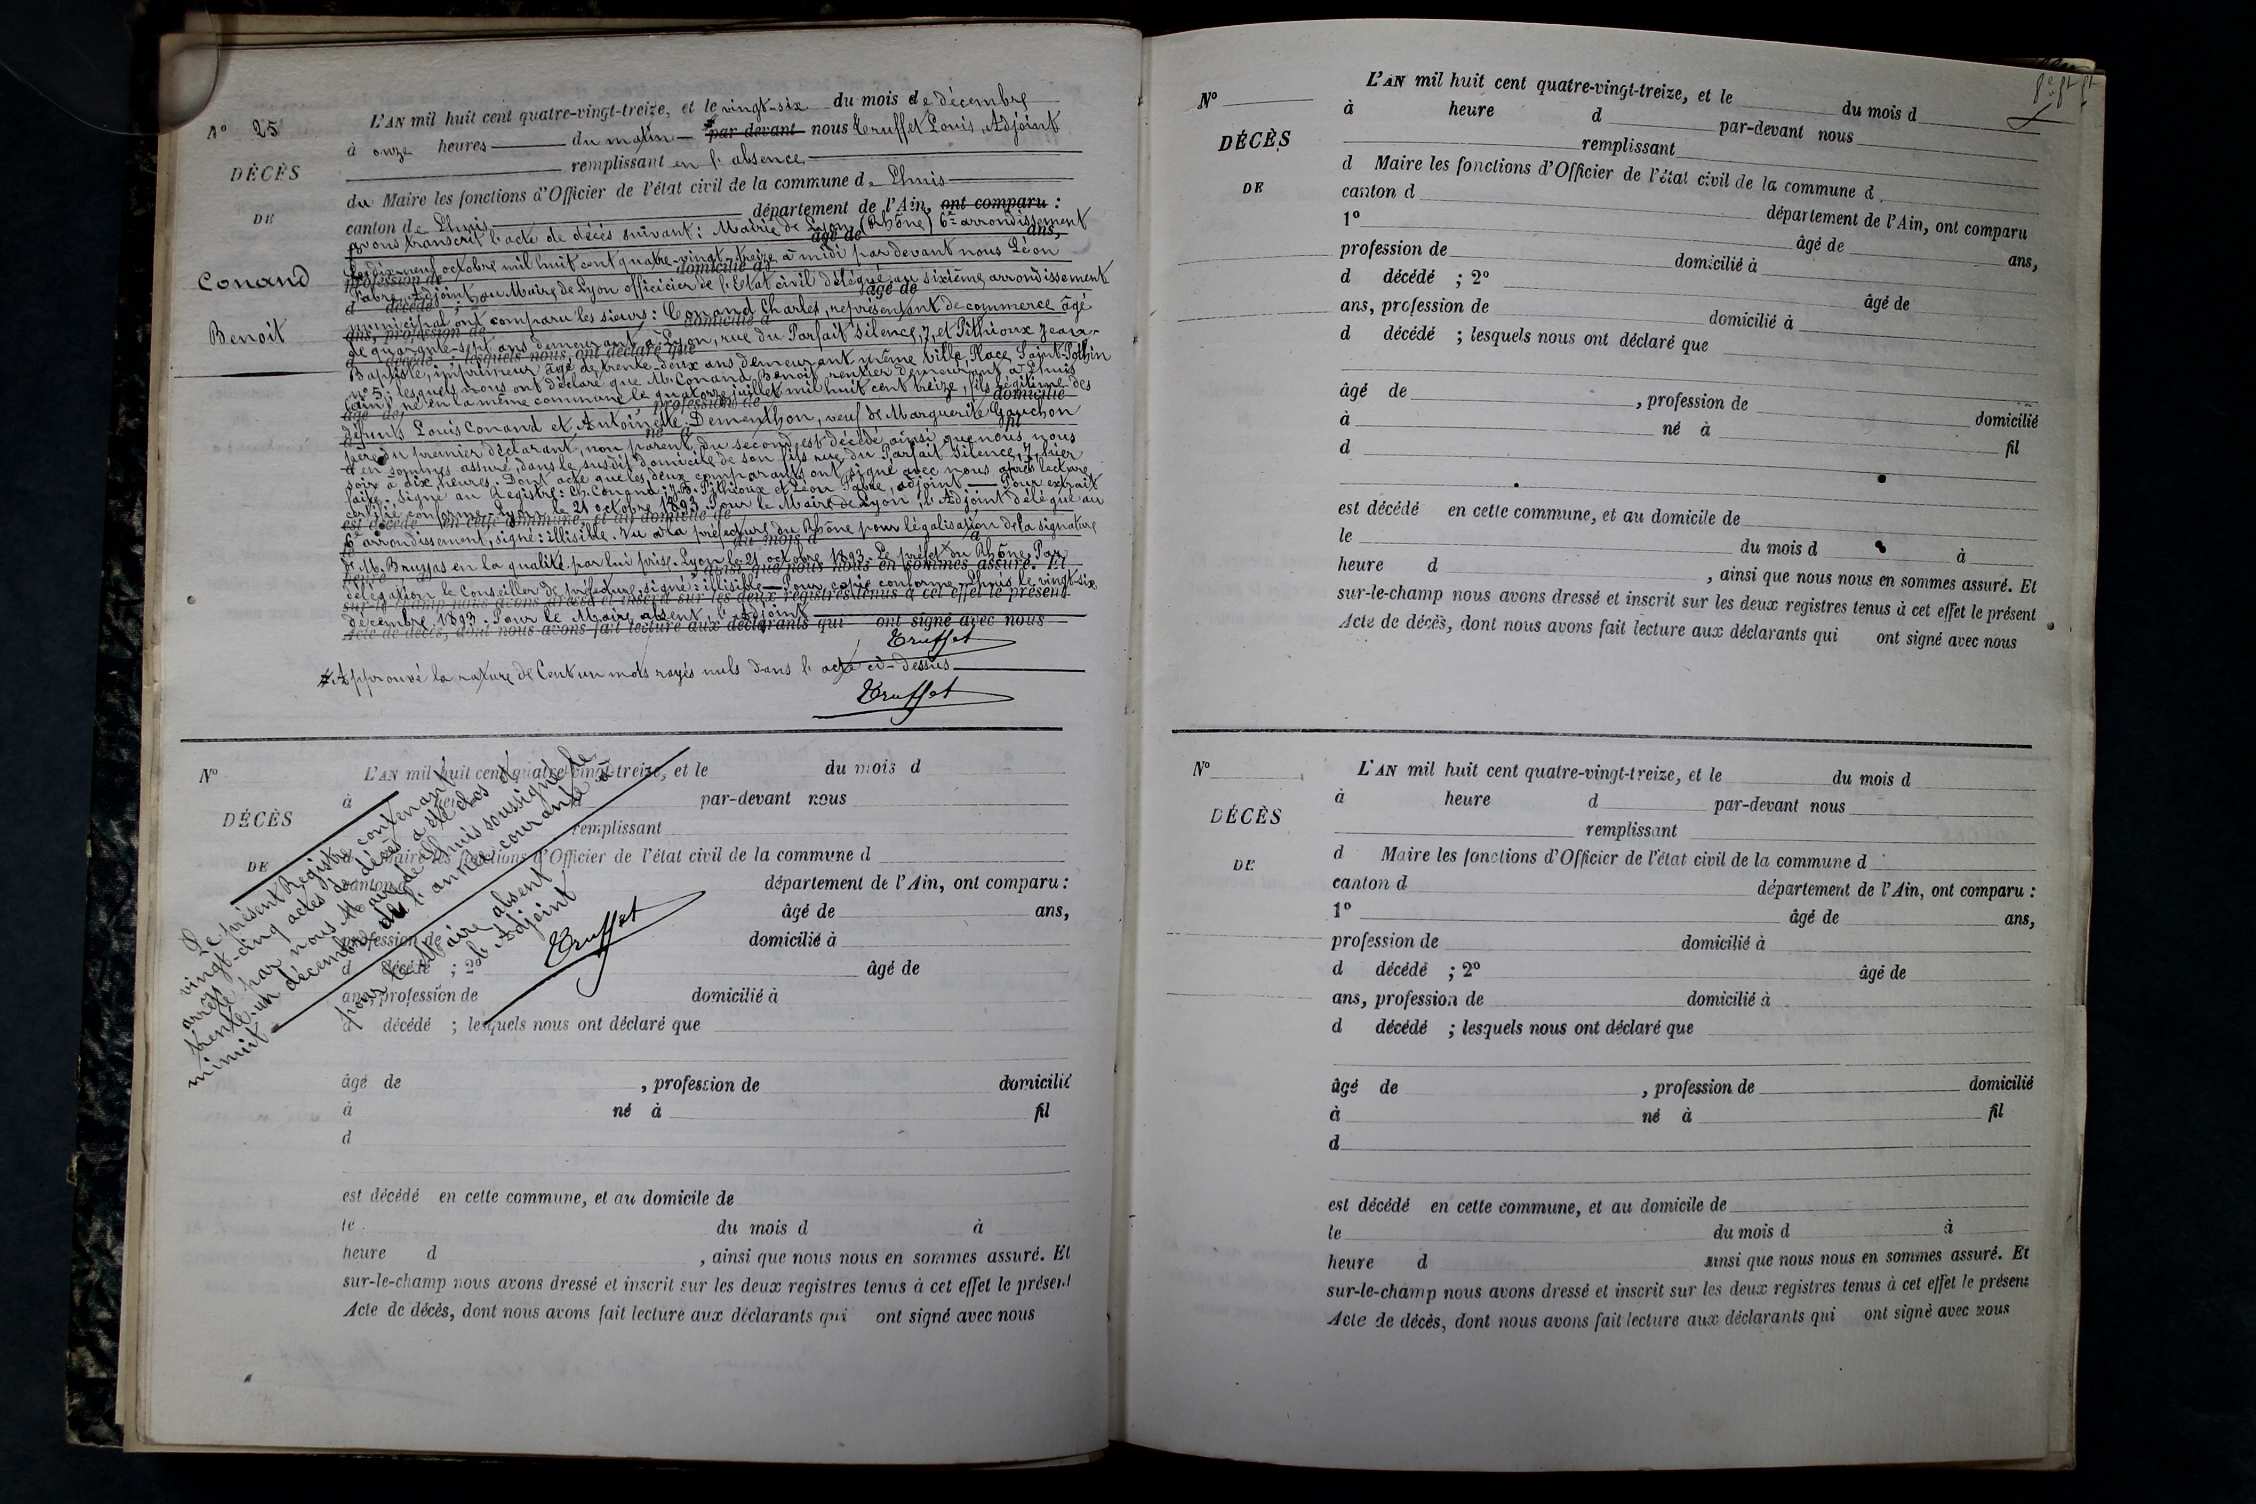 N° 25
DÉCÈS
DE
Conand
Benoit
L'AN mil huit cent quatre-vingt-treize, et le vingt-six du mois de décembre
à onze heures du matin par-devant nous Truffet Louis, Adjoint
remplissant en l'absence
du Maire les fonctions d'Officier de l'état civil de la commune de Lhuis
canton de Lhuis département de l'Ain, ont comparu :
avons transcrit l'acte de décès suivant : Mairie de Lyon (Rhône) 6e arrondissement
âgé de ans,
Le dix-neuf octobre mil huit cent quatre-vingt-treize à midi par devant nous Léon
profession de domicilié à
Fabre, Adjoint au Maire de Lyon officicier de l'Etat civil délégué au sixième arrondissement
d décédé ; âgé de
municipal ont comparu les sieurs : Conand Charles, représentant de commerce âgé
ans, profession de domicilié à
de quarante-sept ans demeurant à Lyon, rue du Parfait Silence, 7, et Pithioux Jean-
d décédé ; lesquels nous ont déclaré que
Baptiste, imprimeur âgé de trente-deux ans demeurant même ville, Place Saint-Pothin
n° 5 ; lesquels nous ont déclaré que M. Conand, Benoit, rentier demeurant à Lhuis
(Ain) né en la même commune le quatorze juillet mil huit cent treize, fils légitime des
âgé de profession de domicilié
défunts Louis Conand et Antoinette Dementhon, veuf de Marguerite Gauchon
né à fil
père du premier déclarant, non parent du second, est décédé ainsi que nous nous
d en sommes assuré, dans le susdit domicile de son fils rue du Parfait Silence, 7, hier
soir à dix heures. Dont acte que les deux comparants ont signé avec nous après lecture
faite. Signé au Registre : Ch. Conand ; J.B. Pithioux et Léon Fabre, adjoint. — Pour extrait
certifié conforme. Lyon, le 21 octobre 1893. Pour le Maire de Lyon, l'Adjoint délégué au
est décédé en cette commune, et au domicile de
6e arrondissement, signé : illisible. Vu à la préfecture du Rhône pour légalisation de la signature
le du mois d à
de M. Bruyas en la qualité par lui prise. Lyon le 21 octobre 1893. Le préfet du Rhône, Par
heure d ainsi que nous nous en sommes assuré. Et
délégation le Conseiller de préfecture, signé : illisible — Pour copie conforme. Lhuis le vingt-six
sur-le-champ nous avons dressé et inscrit sur les deux registres tenus à cet effet le présent
décembre 1893. Pour le Maire absent, l'Adjoint
Acte de décès, dont nous avons fait lecture aux déclarants qui ont signé avec nous
Truffet
Approuvé la rature de Cent un mots rayés nuls dans l'acte ci-dessus
Truffet
N°
DÉCÈS
DE
L'AN mil huit cent quatre-vingt-treize, et le du mois d
à heure par-devant nous
remplissant
d Maire les fonctions d'Officier de l'état civil de la commune d
canton d département de l'Ain, ont comparu :
âgé de ans,
profession de domicilié à
d décédé ; 2° âgé de
ans, profession de domicilié à
d décédé ; lesquels nous ont déclaré que
âgé de , profession de domicilié
à né à fil
d
est décédé en cette commune, et au domicile de
le du mois d à
heure d , ainsi que nous nous en sommes assuré. Et
sur-le-champ nous avons dressé et inscrit sur les deux registres tenus à cet effet le présent
Acte de décès, dont nous avons fait lecture aux déclarants qui ont signé avec nous
Le présent Registre contenant
vingt-cinq actes de décès a été clos et
arrêté par nous Maire de Lhuis soussigné le
trente-un décembre de l'année courante à
minuit
pour le Maire absent
l'Adjoint
Truffet
N°
DÉCÈS
DE
L'AN mil huit cent quatre-vingt-treize, et le du mois d
à heure d par-devant nous
remplissant
d Maire les fonctions d'Officier de l'état civil de la commune d
canton d département de l'Ain, ont comparu
1° âgé de ans,
profession de domicilié à
d décédé ; 2° âgé de
ans, profession de domicilié à
d décédé ; lesquels nous ont déclaré que
âgé de , profession de domicilié
à né à fil
d
est décédé en cette commune, et au domicile de
le du mois d à
heure d , ainsi que nous nous en sommes assuré. Et
sur-le-champ nous avons dressé et inscrit sur les deux registres tenus à cet effet le présent
Acte de décès, dont nous avons fait lecture aux déclarants qui ont signé avec nous
N°
DÉCÈS
DE
L'AN mil huit cent quatre-vingt-treize, et le du mois d
à heure d par-devant nous
remplissant
d Maire les fonctions d'Officier de l'état civil de la commune d
canton d département de l'Ain, ont comparu :
1° âgé de ans,
profession de domicilié à
d décédé ; 2° âgé de
ans, profession de domicilié à
d décédé ; lesquels nous ont déclaré que
âgé de , profession de domicilié
à né à fil
d
est décédé en cette commune, et au domicile de
le du mois d à
heure d ainsi que nous nous en sommes assuré. Et
sur-le-champ nous avons dressé et inscrit sur les deux registres tenus à cet effet le présent
Acte de décès, dont nous avons fait lecture aux déclarants qui ont signé avec nous